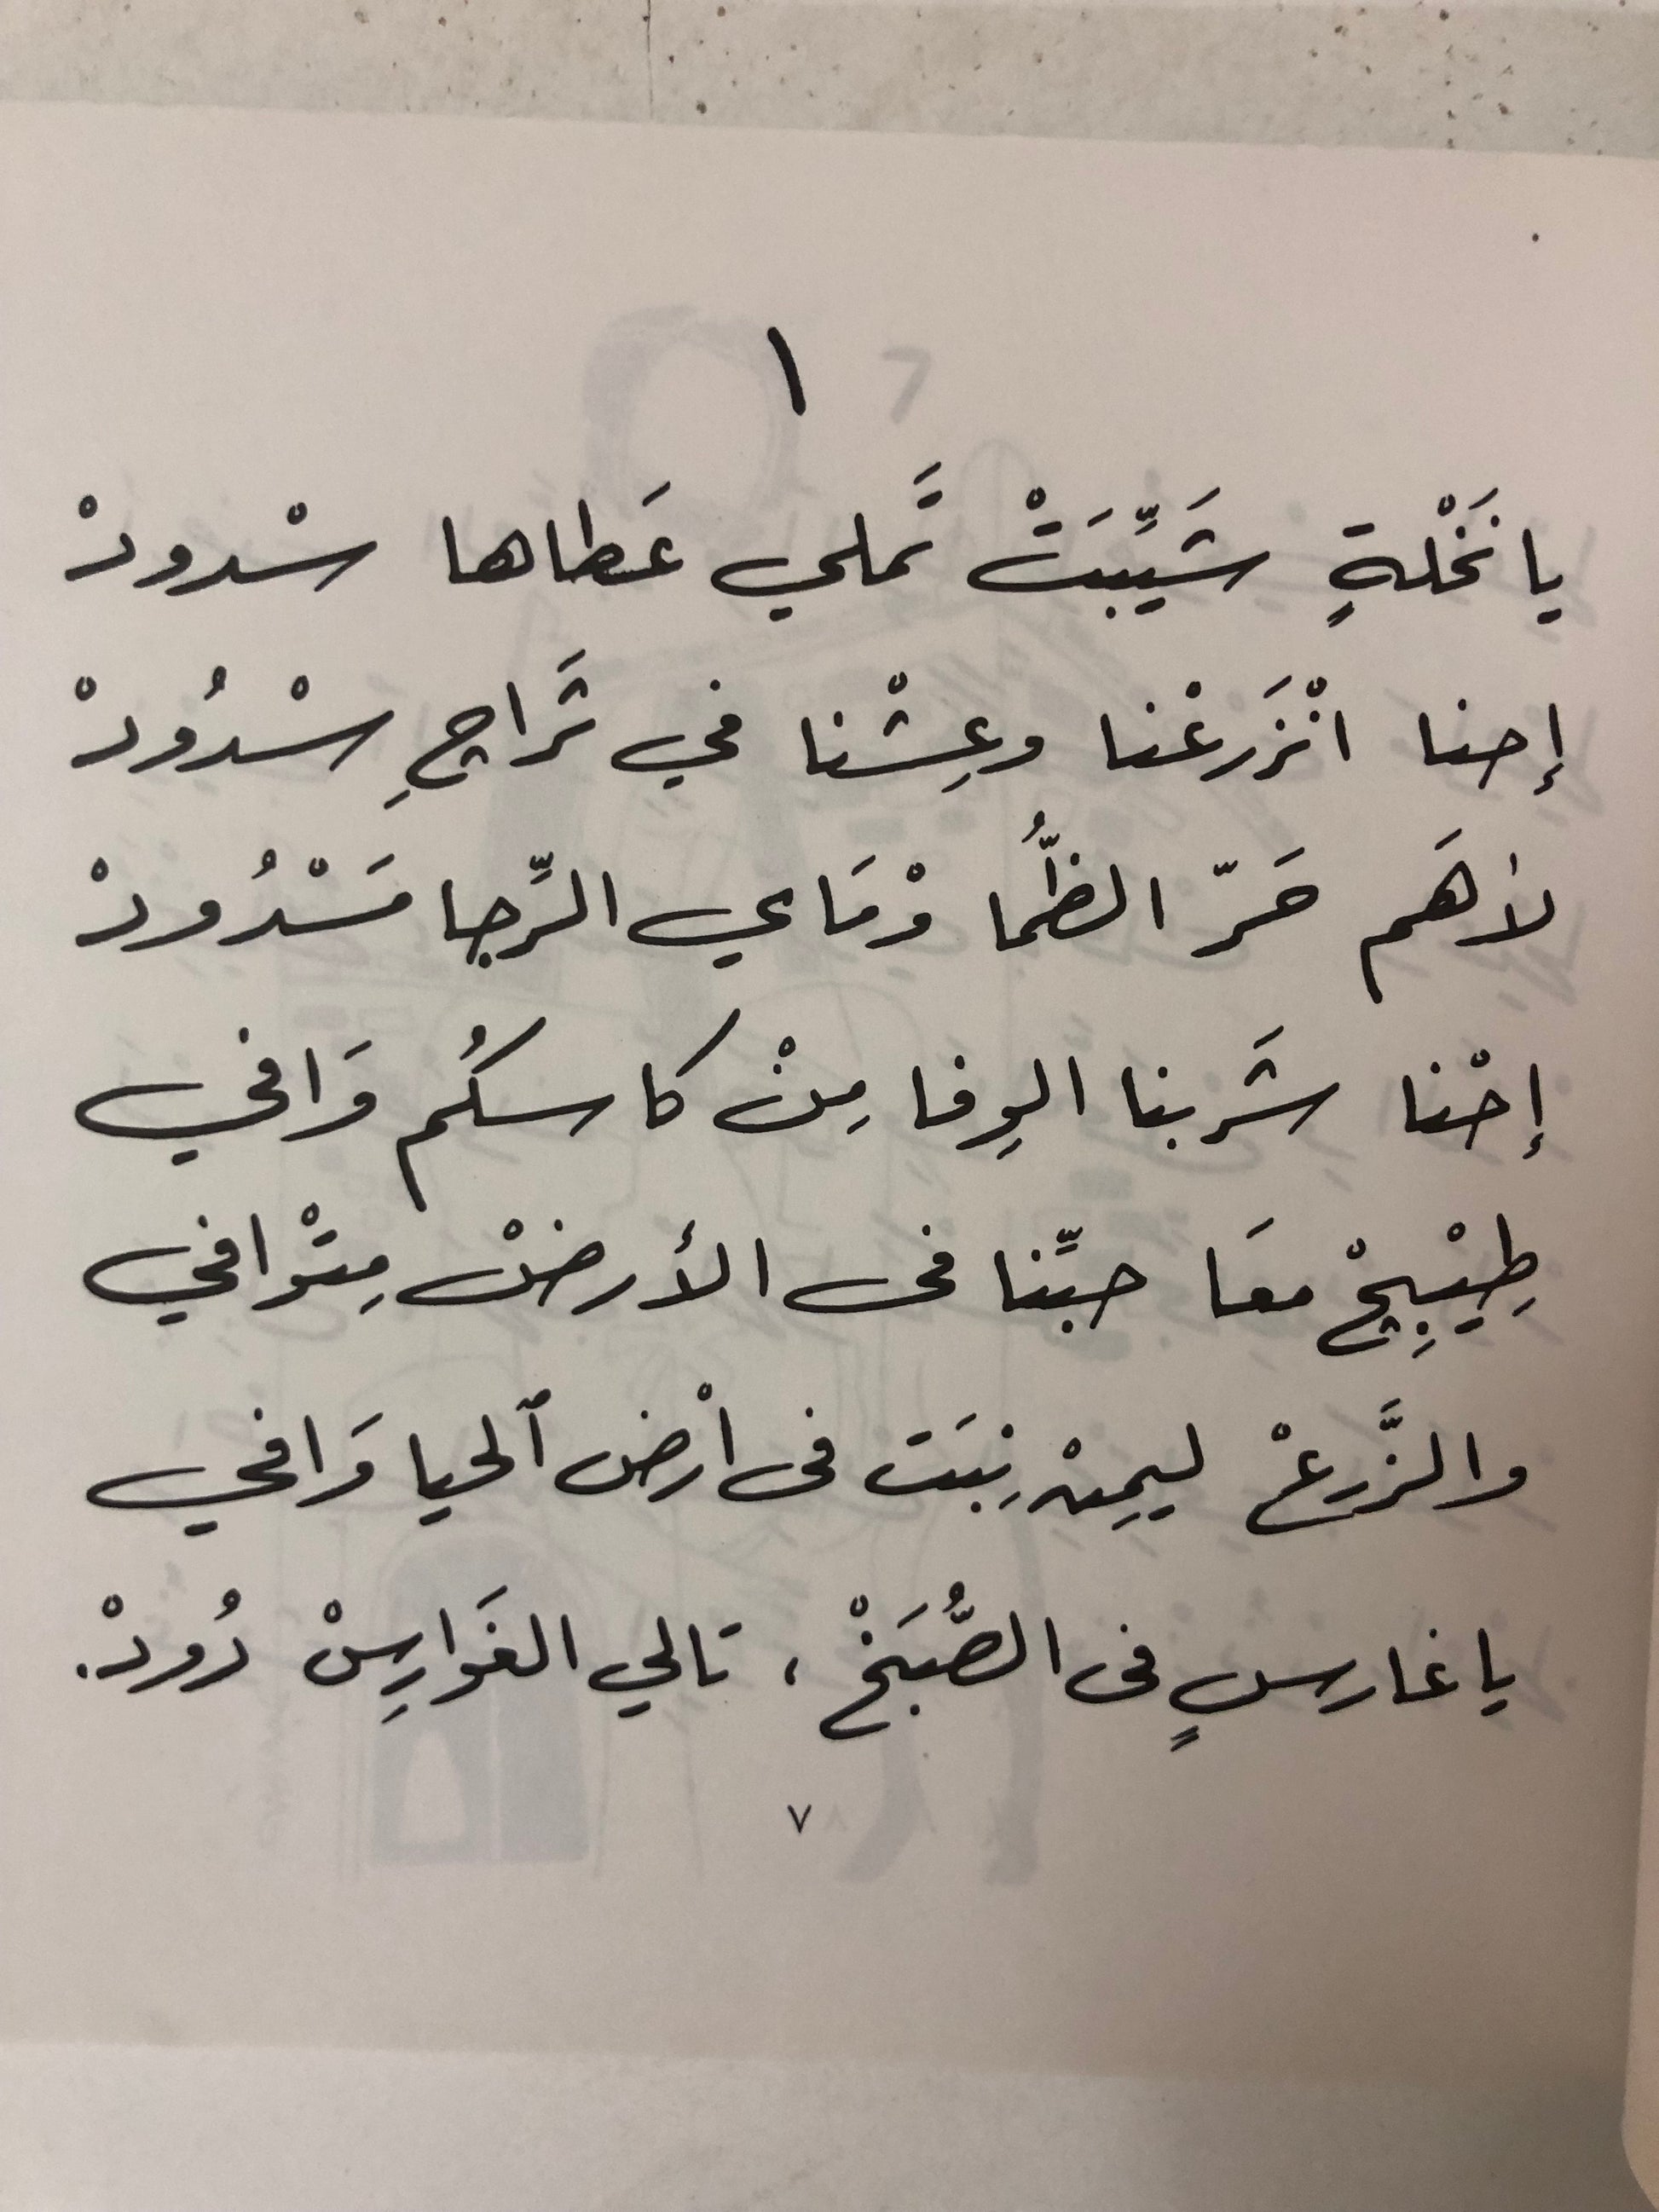 ١
يا نَخْلةٍ شَيِّبَتْ تَملي عَطاها سْدودْ
إحنا انْزَرَعْنا وعِشْنا في ثَراچِ سْدُودْ
لاٰهَم حَرّ الظُّما وْمَاي الرِّجا مَسْدُودْ
إحْنا شَربنا الوِفا مِنْ كاسكُم وَافي
طِيْبِچْ معَا حبِّنا فى الأرضْ مِتْوافي
والزَّرعْ ليمِنْ نِبَت فى ارْض ٱلحيا وَافي
يا غارسٍ فى الصُّبَخْ، تالي الغَوَارِسْ دُودْ.
٧